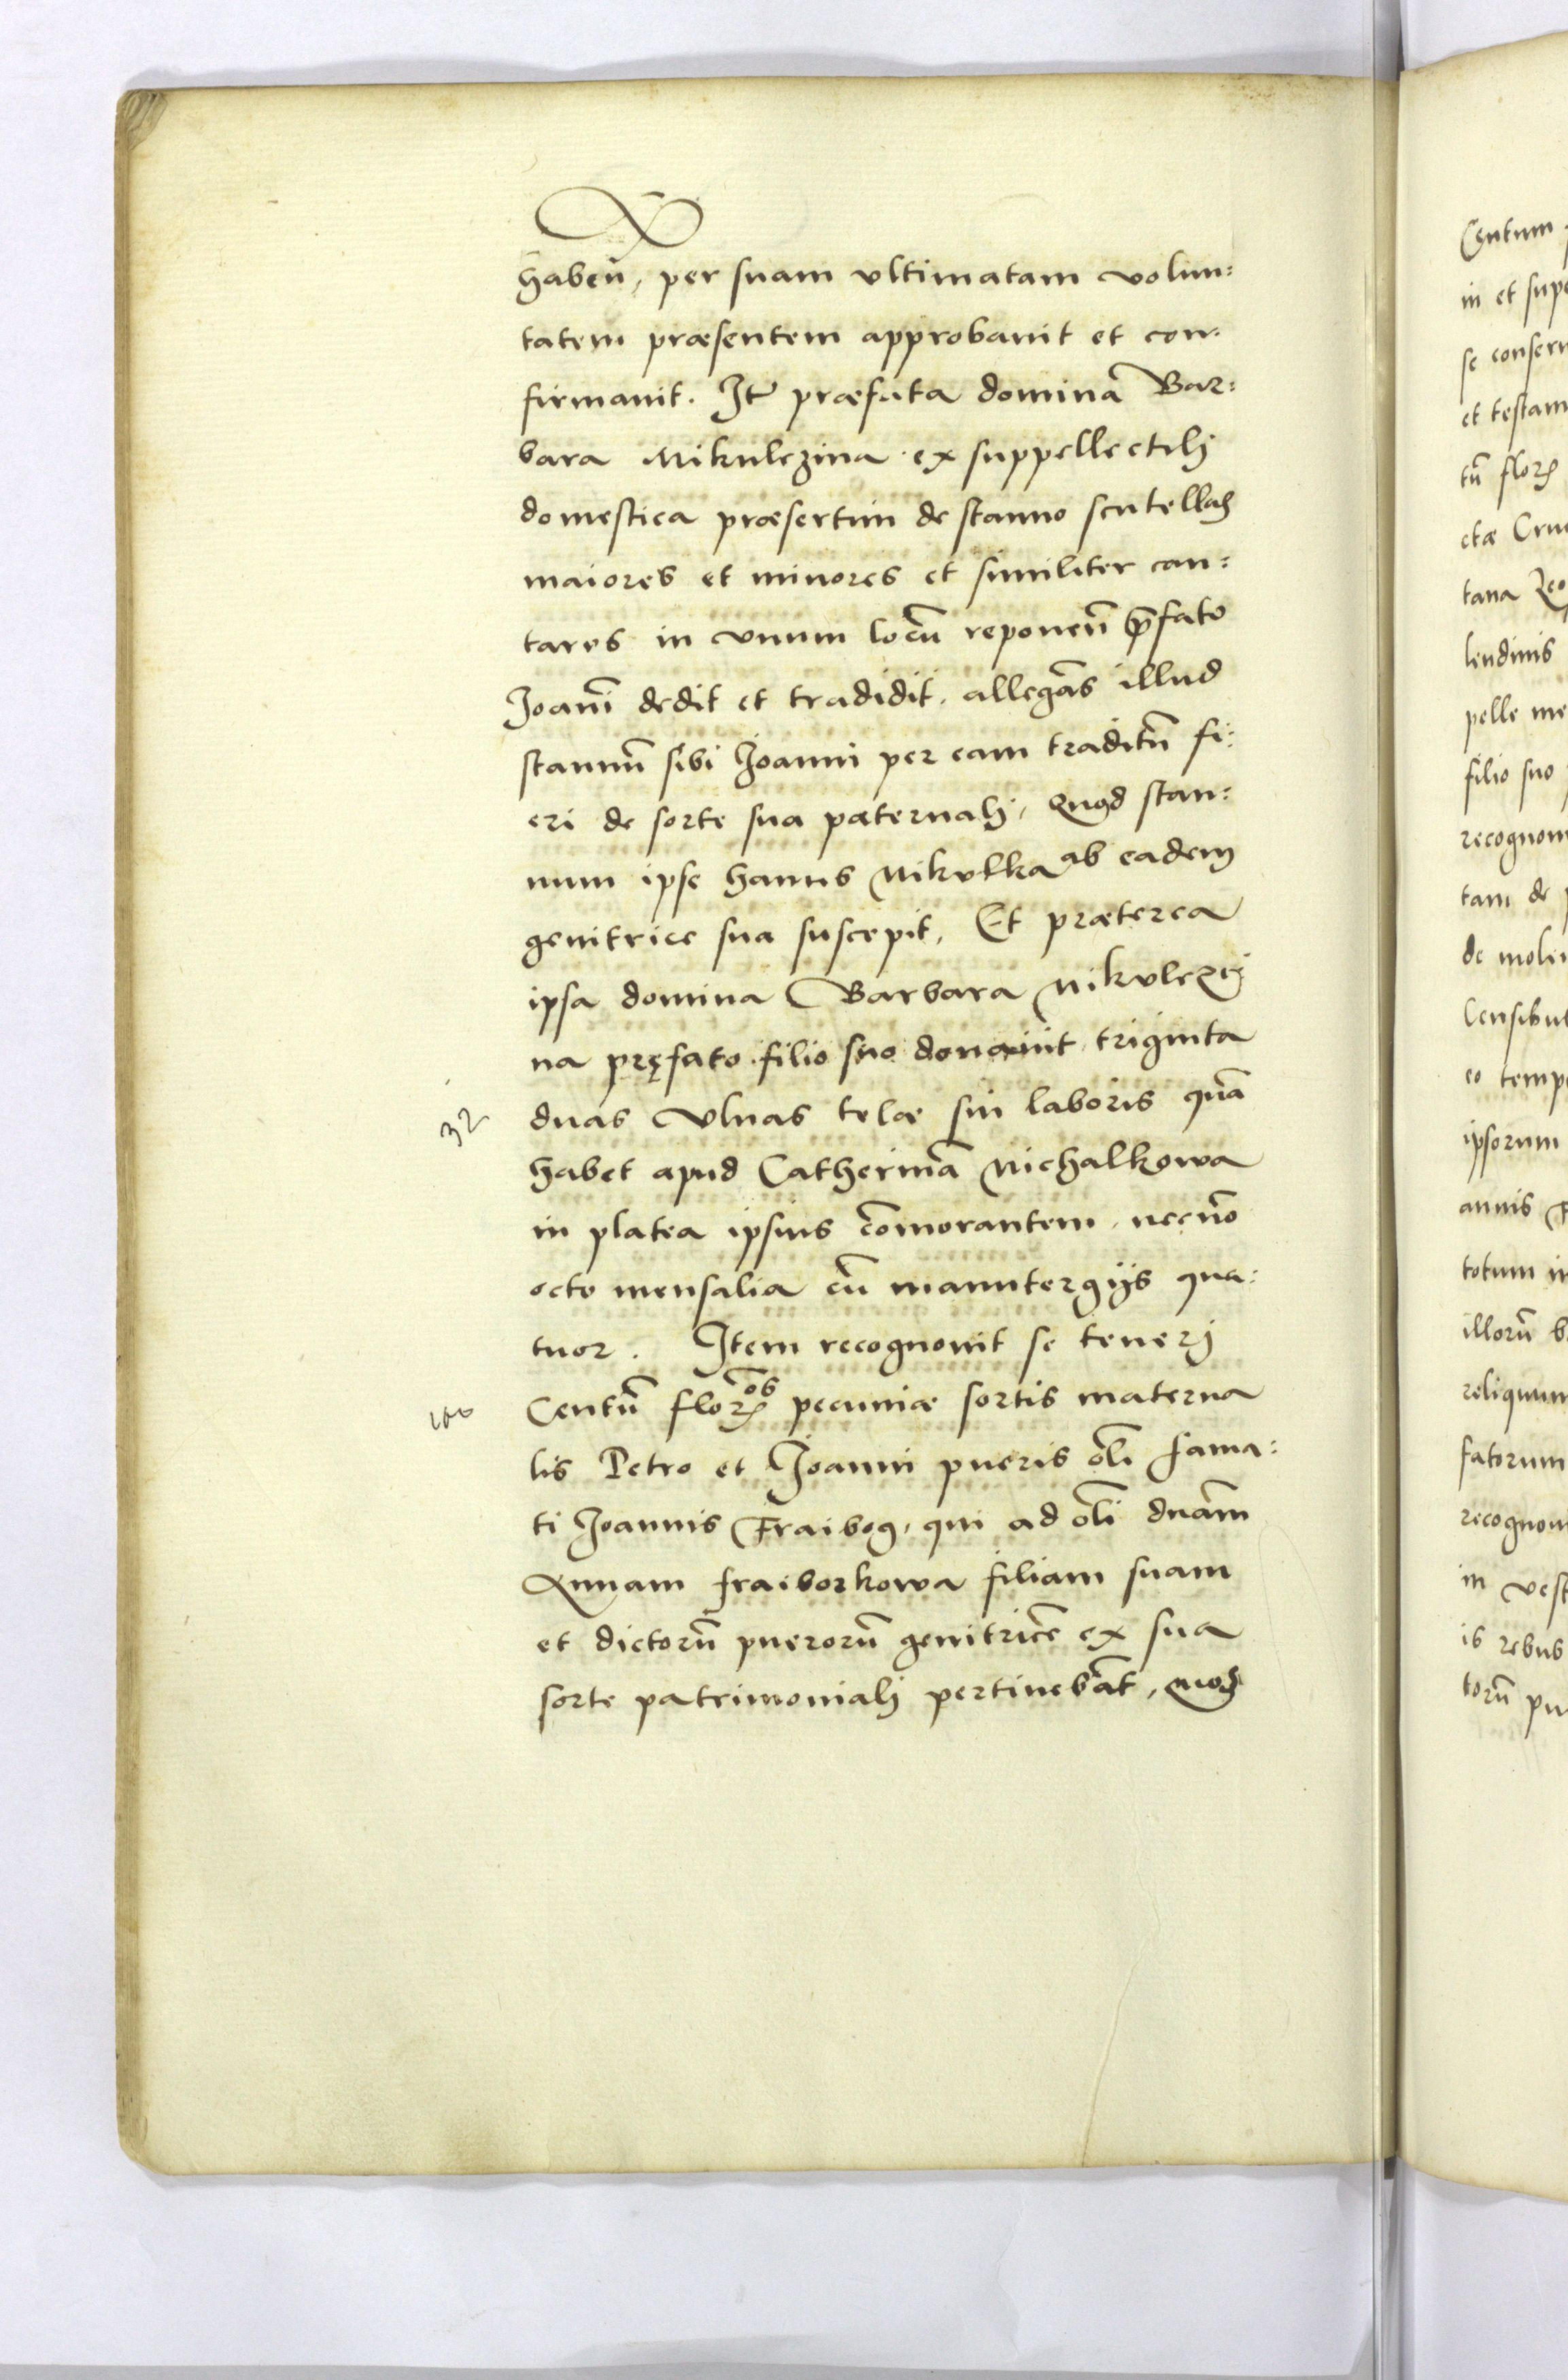 habeñ, per suam vltimatam volun:
tatem præsentem approbauit et con:
firmauit. Itē præfata domina Bar:
bara Mikulczina ex suppellectili
domestica præsertim de stanno scutellas
maiores et minores et similiter can:
taros in vnum locū reponeñ p̄fato
Joani dedit et tradidit, allegās illud
stannū sibi Joanni per eam traditū fi:
eri de sorte sua paternali, Quod stan:
num ipse Hanus Mikulka ab eadem
genitrice sua suscepit, Et præterea
ipsa domina Barbara Mikulczi
na pręfato filio suo donauit triginta
32 duas Vlnas telæ sui laboris quā
habet apud Catherinā Michalkowa
in platea ipsius cōmorantem, necnō
octo mensalia cū manutergijs qua:
tuor. Item recognouit se teneri
100 Centū flor̄os pecuniæ sortis materna
lis Petro et Joanni pueris oli fama:
ti Joannis Fraibog, qui ad oli dnām
Annam fraiborkowa filiam suam
et dictorū puerorū genitricē ex sua
sorte patrimoniali pertinebāt, quos
Centum
in et sup
se conser
et testam
tū flor
ctæ Cru
tana
lendinis
pelle me
filio suo
recognou
tam de
de moli
Censibu
eo temp
ipsorum
annis
totum in
illorū b
reliquum
fatorum
recognou
in vest
is rebus
torū pu